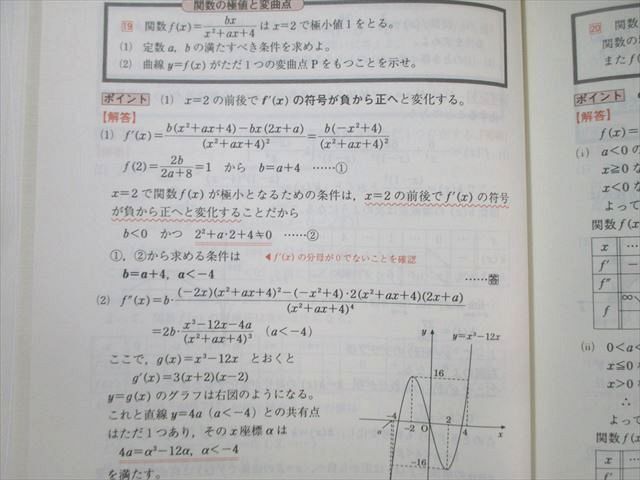 関数の極値と変曲点
19 関数 f(x)=bx/(x²+ax+4) は x=2 で極小値1をとる。
(1) 定数 a, b の満たすべき条件を求めよ。
(2) 曲線 y=f(x) がただ1つの変曲点Pをもつことを示せ。
ポイント (1) x=2 の前後で f′(x) の符号が負から正へと変化する。
【解答】
(1) f′(x)=b(x²+ax+4)−bx(2x+a)/(x²+ax+4)²=b(−x²+4)/(x²+ax+4)²
f(2)=2b/(2a+8)=1 から b=a+4 ……①
x=2 で関数 f(x) が極小となるための条件は, x=2 の前後で f′(x) の符号
が負から正へと変化することだから
b<0 かつ 2²+a·2+4≠0 ……②
①, ②から求める条件は ◀f′(x) の分母が0でないことを確認
b=a+4, a<−4 ……答
(2) f″(x)=b·(−2x)(x²+ax+4)²−(−x²+4)·2(x²+ax+4)(2x+a)/(x²+ax+4)⁴
=2b·x³−12x−4a/(x²+ax+4)³ (a<−4)
ここで, g(x)=x³−12x とおくと
g′(x)=3(x+2)(x−2)
y=g(x) のグラフは右図のようになる。
これと直線 y=4a (a<−4) との共有点
はただ1つあり, その x 座標 α は
4a=α³−12α, α<−4
を満たす。
y
y=x³−12x
16
−4
−2
O
2
4
x
α
−16
20 関数
関数の
また f(
f(x)=
(i) a<0 の
x≧0 な
x<0 な
よって
関数 f(x
x …
f′ −
f″
f
(ii) 0<a<
x≦0 な
x>0 な
∴
よって
関数 f(x